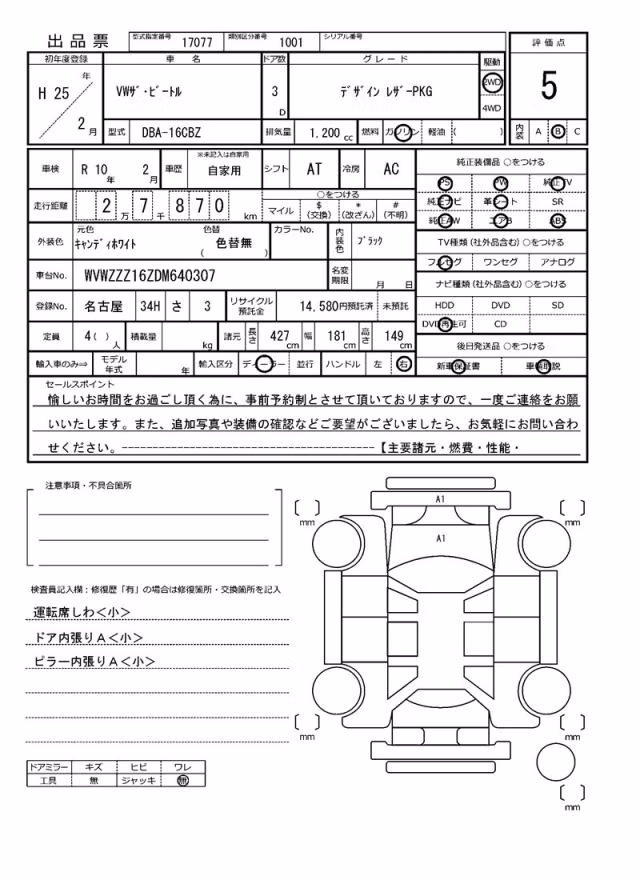 出品票 型式指定番号 17077 類別区分番号 1001 シリアル番号
評価点
5
内装 A B C
初年度登録 車名 ドア数 グレード 駆動
H 25 年 2 月 VWザ・ビートル 3 D デザイン レザーPKG 2WD 4WD
型式 DBA-16CBZ 排気量 1.200 cc 燃料 ガソリン 軽油 ( )
車検 R 10 年 2 月 車歴 ※未記入は自家用 自家用 シフト AT 冷房 AC
走行距離 2 万 7 千 8 7 0 km ○をつける
マイル $(交換) *(改ざん) #(不明)
外装色 元色 キャンディホワイト 色替 ( 色替無 ) カラーNo. 内装色 ブラック
車台No. WVWZZZ16ZDM640307 名変期限 月 日
登録No. 名古屋 34H さ 3 リサイクル預託金 14,580円預託済 未預託
定員 4( ) 人 積載量 kg 諸元 長さ 427 cm 幅 181 cm 高さ 149 cm
輸入車のみ⇒ モデル年式 年 輸入区分 ディーラー 並行 ハンドル 左 右
純正装備品 ○をつける
PS PW 純正TV
純正ナビ 革シート SR
純正AW エアB ABS
TV種類(社外品含む)○をつける
フルセグ ワンセグ アナログ
ナビ種類(社外品含む)○をつける
HDD DVD SD
DVD再生可 CD
後日発送品 ○をつける
新車保証書 車輌取説
セールスポイント
愉しいお時間をお過ごし頂く為に、事前予約制とさせて頂いておりますので、一度ご連絡をお願
いいたします。また、追加写真や装備の確認などご要望がございましたら、お気軽にお問い合わ
せください。--------------------------------------【主要諸元・燃費・性能・
注意事項・不具合箇所
検査員記入欄:修復歴「有」の場合は修復箇所・交換箇所を記入
運転席しわ<小>
ドア内張りA<小>
ピラー内張りA<小>
ドアミラー キズ ヒビ ワレ
工具 無 ジャッキ 無
A1
A1
mm
mm
mm
mm
mm